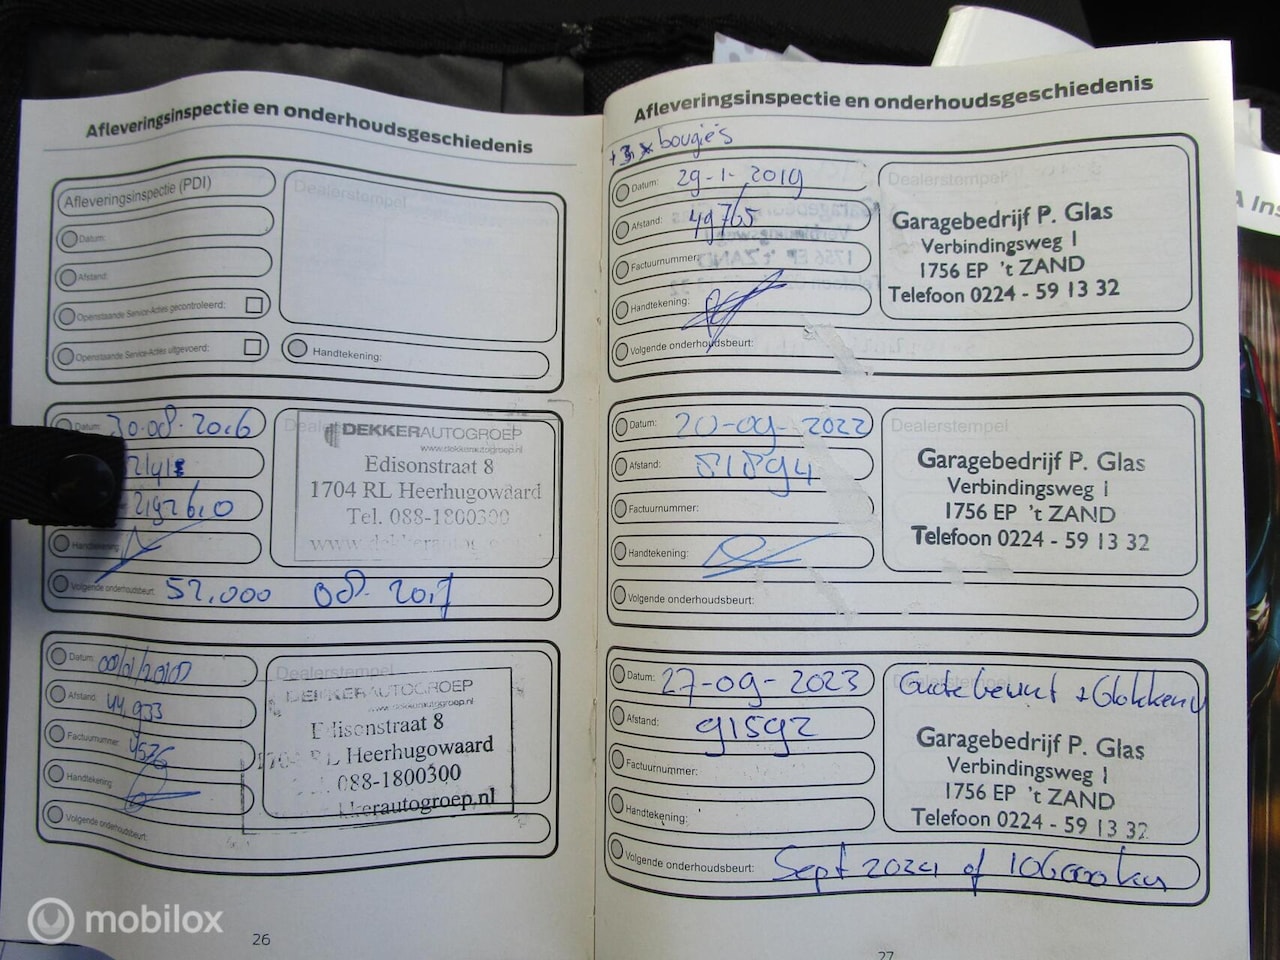 Afleveringsinspectie en onderhoudsgeschiedenis
Afleveringsinspectie (PDI)
Dealerstempel
Datum:
Afstand:
Openstaande Service-Acties gecontroleerd:
Openstaande Service-Acties uitgevoerd:
Handtekening:
Datum: 30-08-2016
Handtekening
Volgende onderhoudsbeurt: 52.000 08-2017
DEKKERAUTOGROEP
www.dekkerautogroep.nl
Edisonstraat 8
1704 RL Heerhugowaard
Tel. 088-1800300
Datum:
Afstand: 44.933
Factuurnummer
Handtekening
Volgende onderhoudsbeurt:
Dealerstempel
DEKKERAUTOGROEP
Edisonstraat 8
RL Heerhugowaard
088-1800300
kkerautogroep.nl
26
Afleveringsinspectie en onderhoudsgeschiedenis
bougies
Datum: 29-1-2019
Afstand: 49765
Factuurnummer:
Handtekening:
Volgende onderhoudsbeurt:
Dealerstempel
Garagebedrijf P. Glas
Verbindingsweg 1
1756 EP 't ZAND
Telefoon 0224 - 59 13 32
Datum: 20-09-2022
Afstand: 81894
Factuurnummer:
Handtekening:
Volgende onderhoudsbeurt:
Dealerstempel
Garagebedrijf P. Glas
Verbindingsweg 1
1756 EP 't ZAND
Telefoon 0224 - 59 13 32
Datum: 27-09-2023
Afstand: 91592
Factuurnummer:
Handtekening:
Volgende onderhoudsbeurt: Sept 2024 of 106000 km
Garagebedrijf P. Glas
Verbindingsweg 1
1756 EP 't ZAND
Telefoon 0224 - 59 13 32
27
A Ins
mobilox